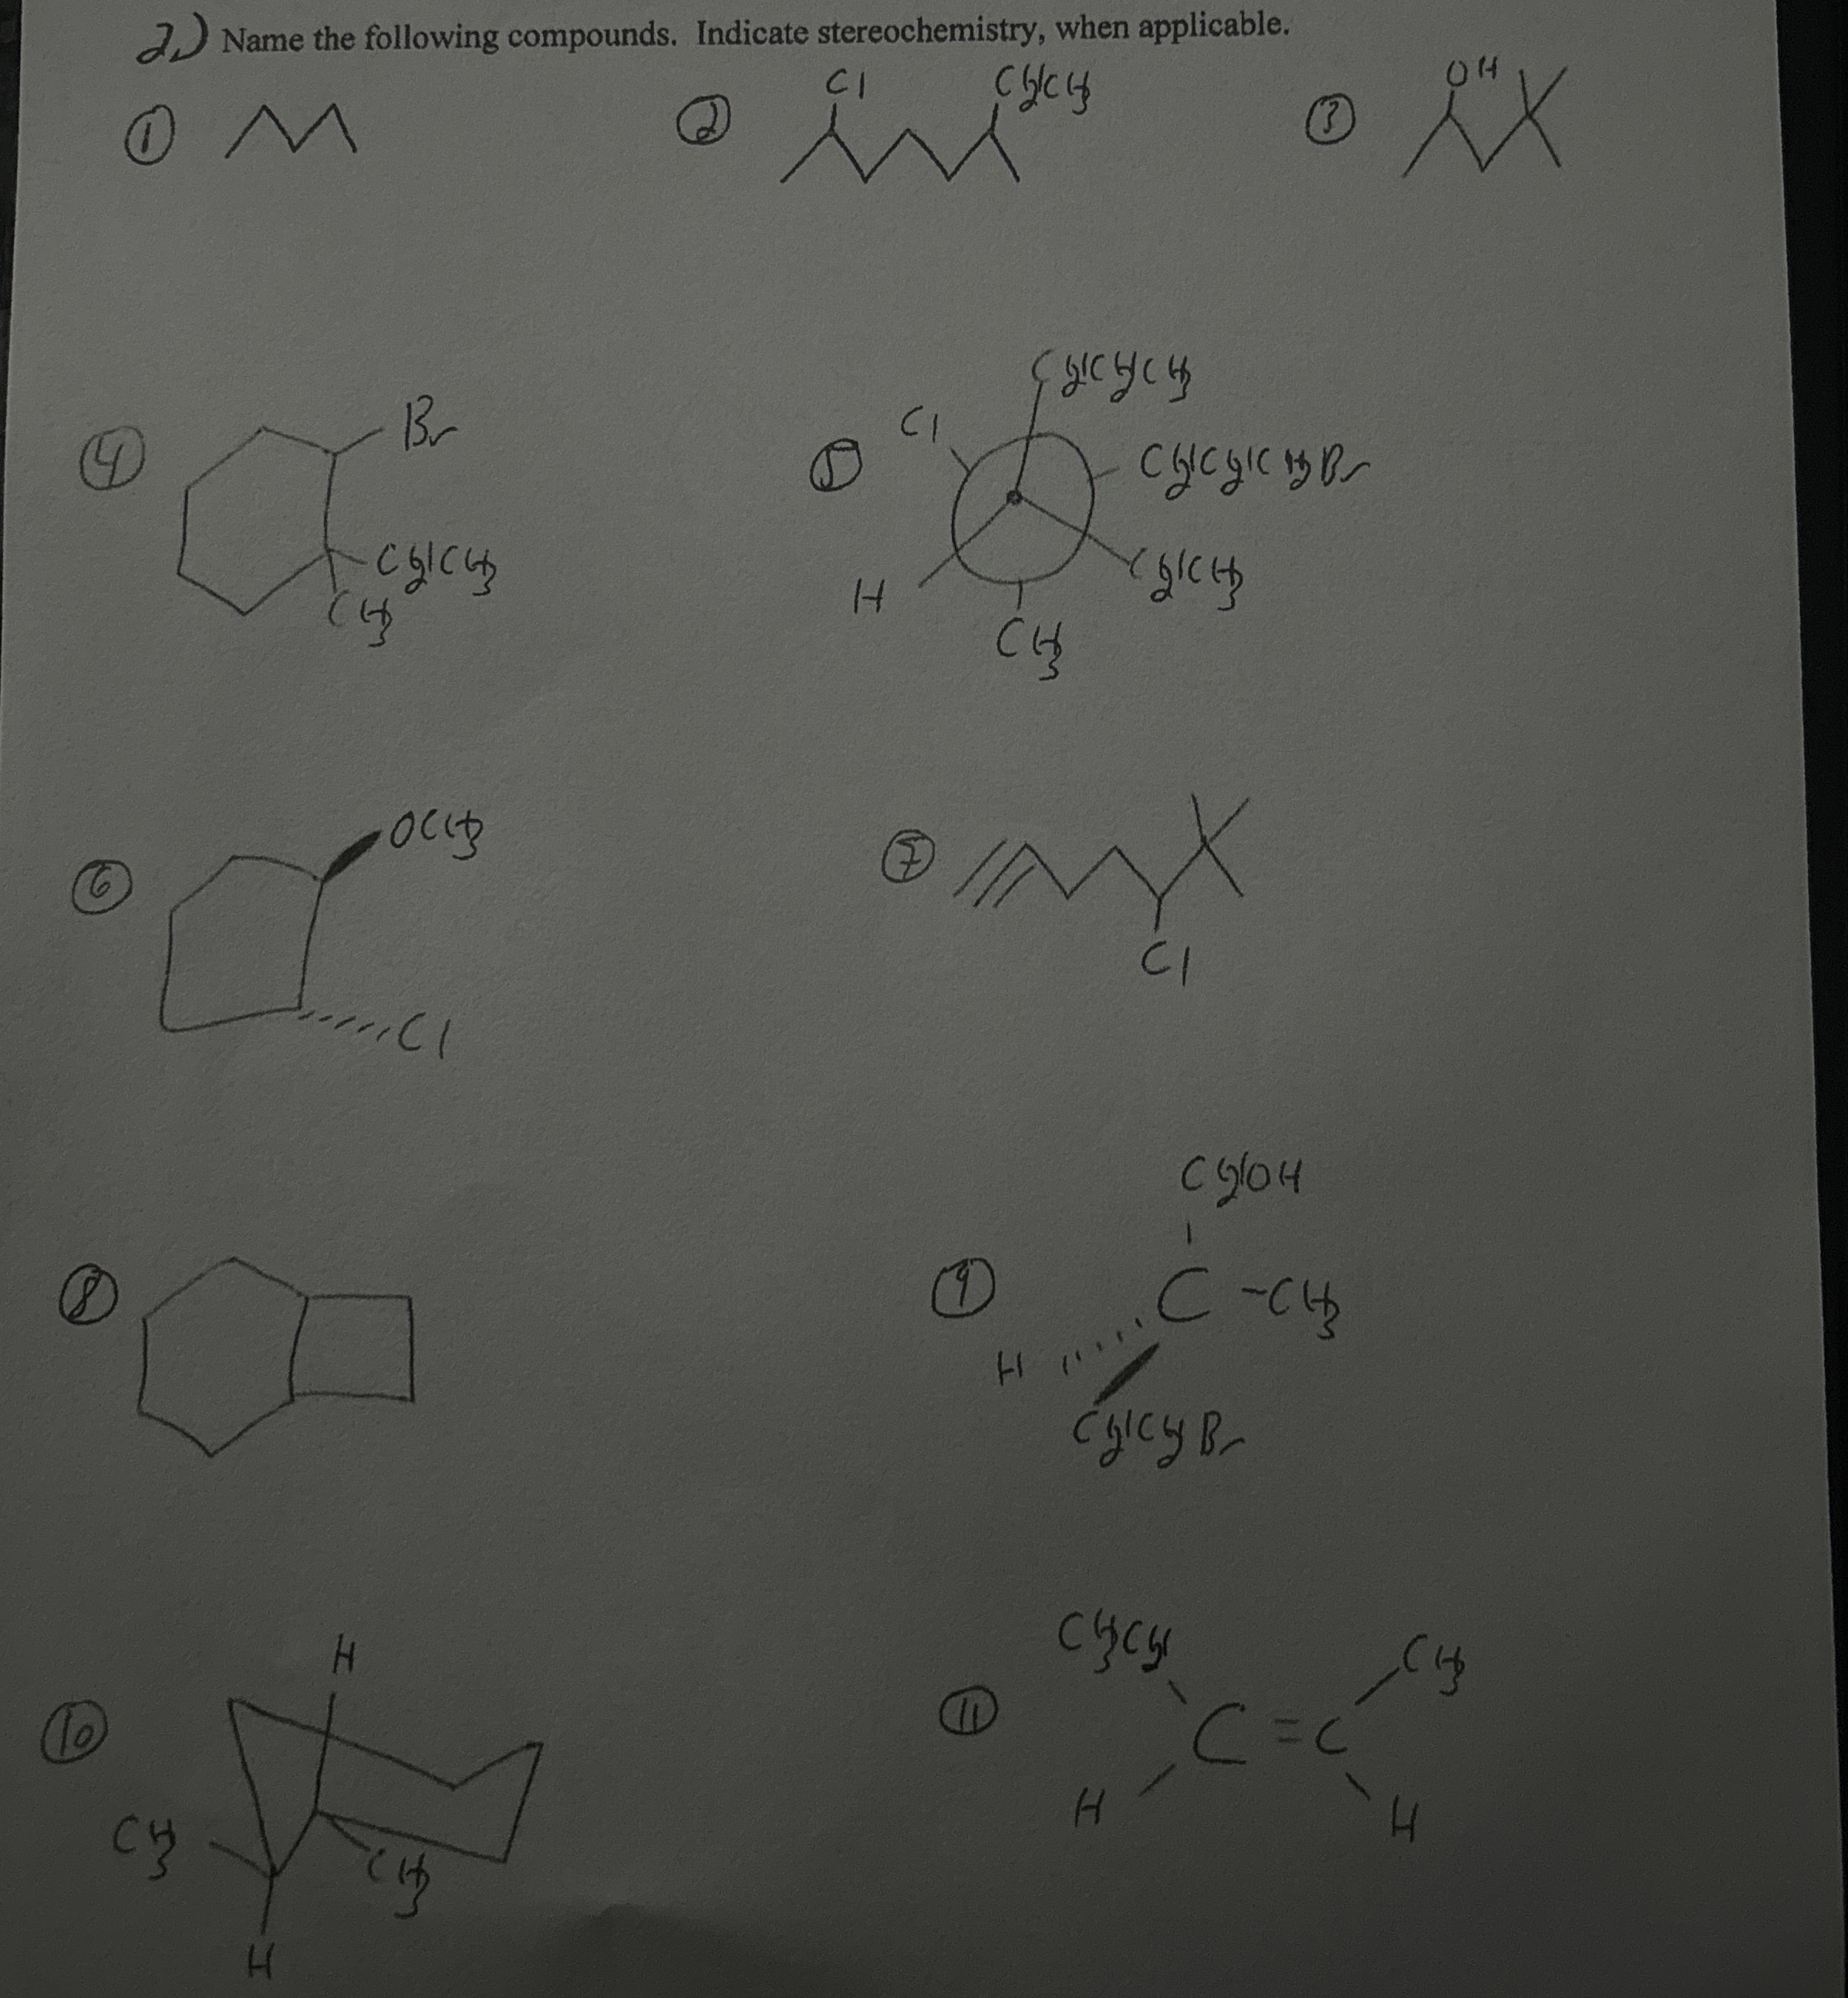 2.) Name the following compounds. Indicate stereochemistry, when applicable.
① ② Cl CH2CH3 ③ OH
④ Br CH2CH3 CH3
⑤ CH2CH2CH3 Cl CH2CH2CH2Br H CH2CH3 CH3
⑥ OCH3 Cl
⑦ Cl
⑧
⑨ CH2OH C -CH3 H CH2CH2Br
⑩ H CH3 CH3 H
⑪ CH3CH2 CH3 C = C H H